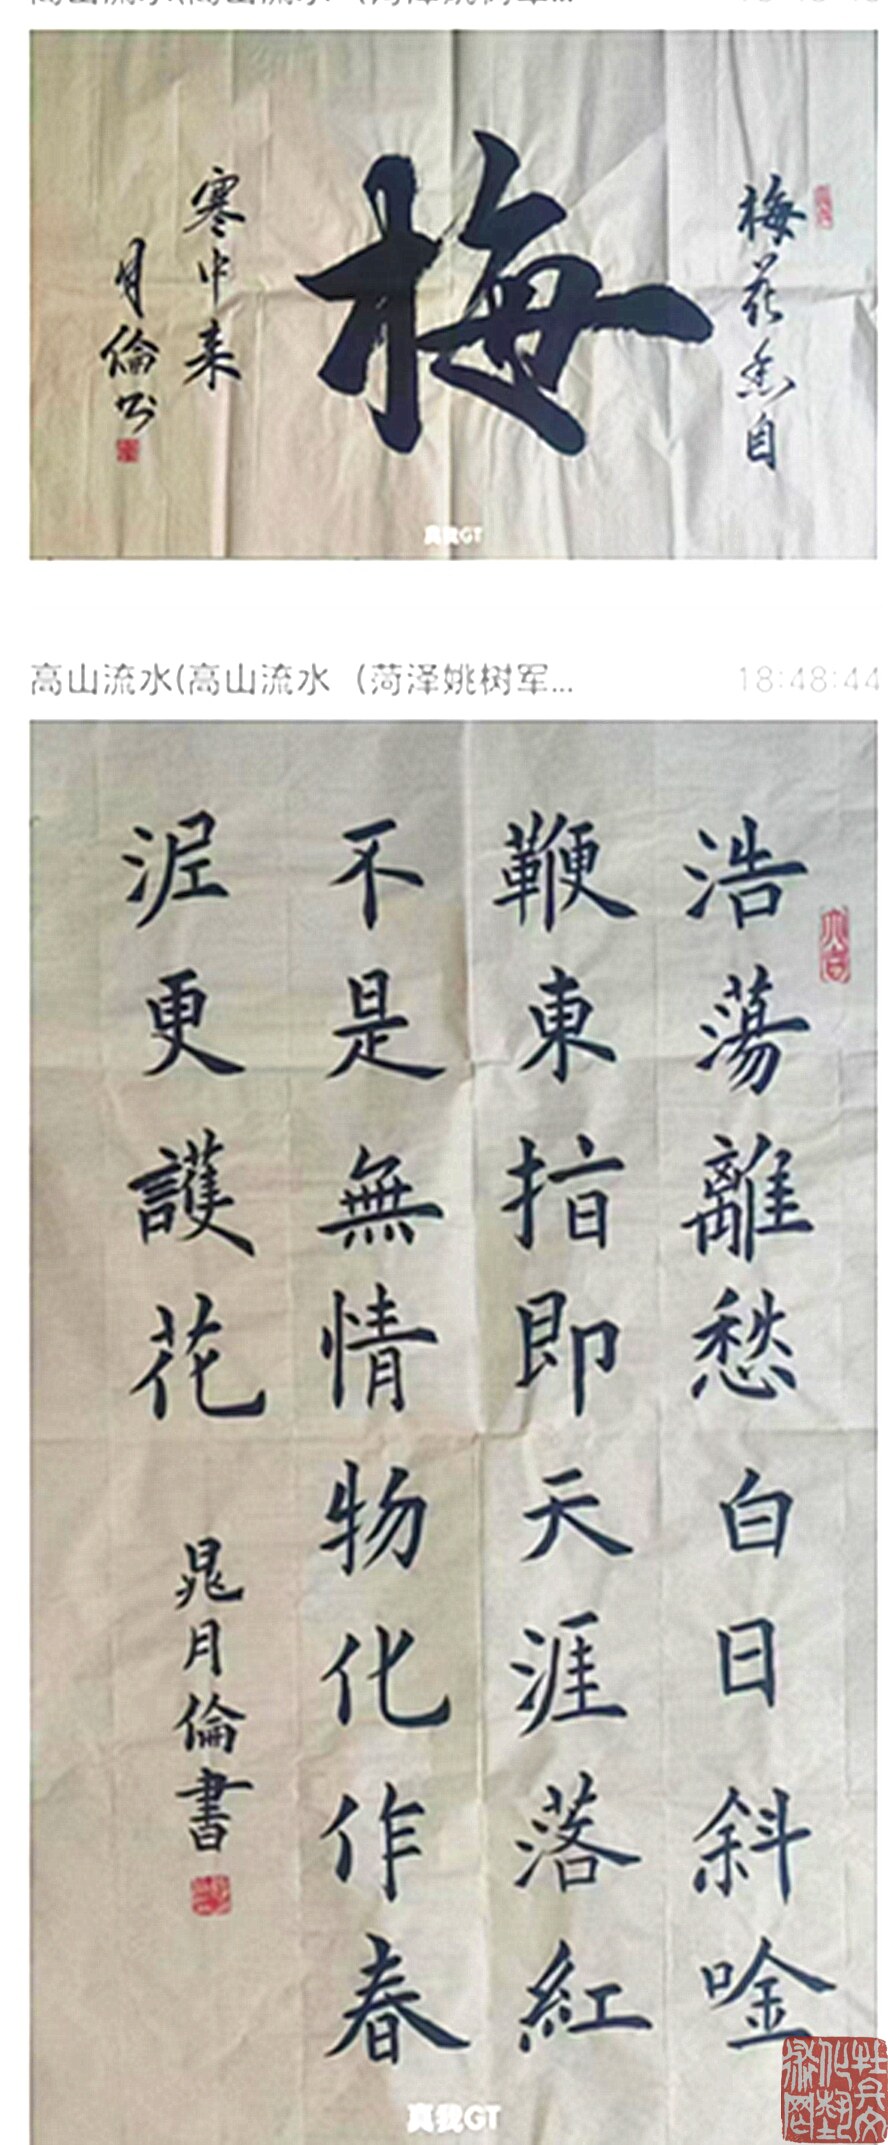 梅花香自
梅
寒中来
月倫书
真我GT
高山流水(高山流水 (菏泽姚树军...
18:48:44
浩蕩離愁白日斜唫
鞭東指即天涯落紅
不是無情物化作春
泥更護花
晁月倫書
真我GT